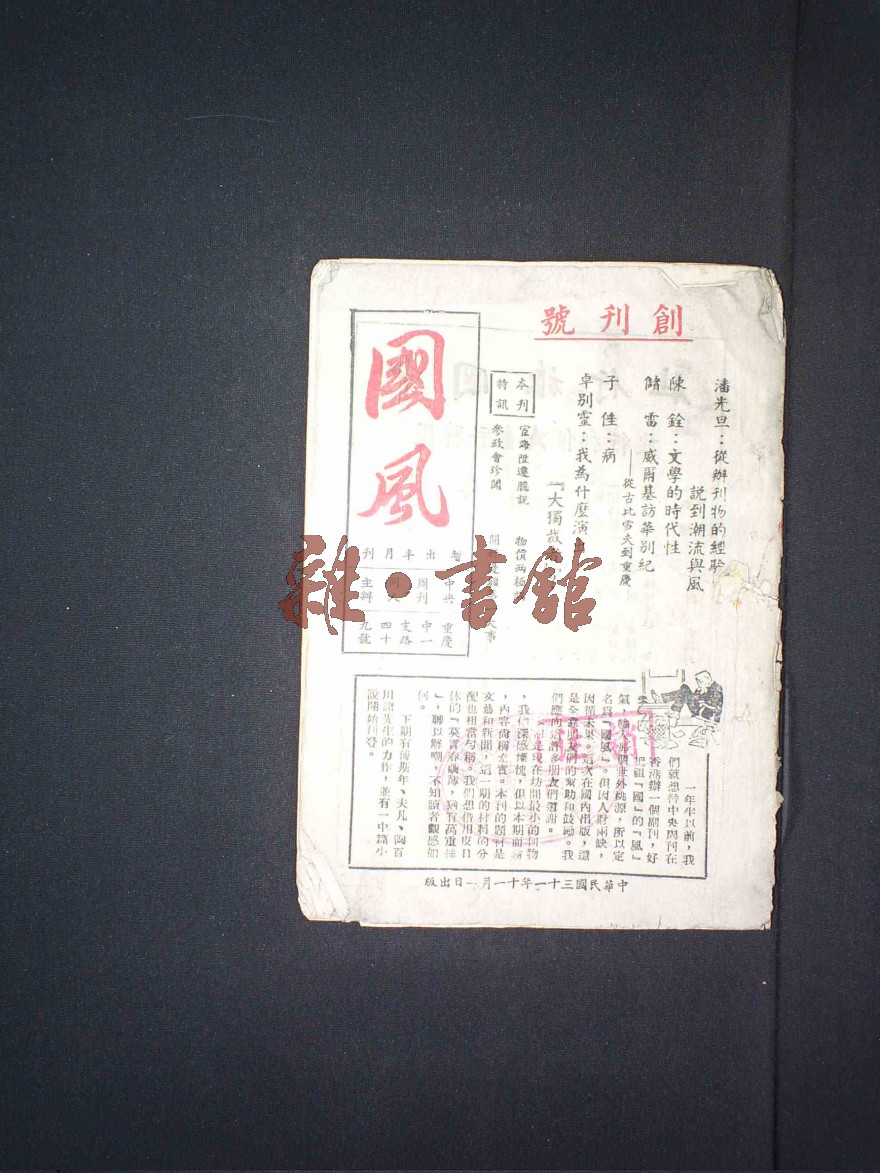 創刊號
潘光旦：從辦刊物的經驗
說到潮流與風
陳銓：文學的時代性
儲雷：威爾基訪華別紀
——從古比雪夫到重慶
子佳：病
卓別靈：我為什麼演出
『大獨裁者』
本刊特訊
宦海陞遷臆說
物價兩極
參政會珍聞
國風
暫出半月刊
中央周刊
主辦
重慶
中一
支路
四十
九號
一年半以前，我
們就想替中央周刊在
香港辦一個副刊，好
把祖『國』的『風』
氣，輸入那個世外桃源，所以定
名為『國風』。但因人財兩缺，
因循未果。這次在國內出版，還
是全靠朋友們的幫助和鼓勵。我
們應向這許多朋友們道謝。
是現在坊間最小的刊物
，我們深感慚愧，但以本期而論
，內容尚稱充實。本刊的題材是
文藝和新聞，這一期的材料的分
配也相當勻稱。我們想借用皮日
休的『莫言春繭薄，猶有萬重絲
』，聊以解嘲，不知讀者觀感如
何。
下期有傅斯年、夫凡、陶百
川諸先生的力作，並有一中篇小
說開始刊登。
中華民國三十一年十一月一日出版
雜·書館